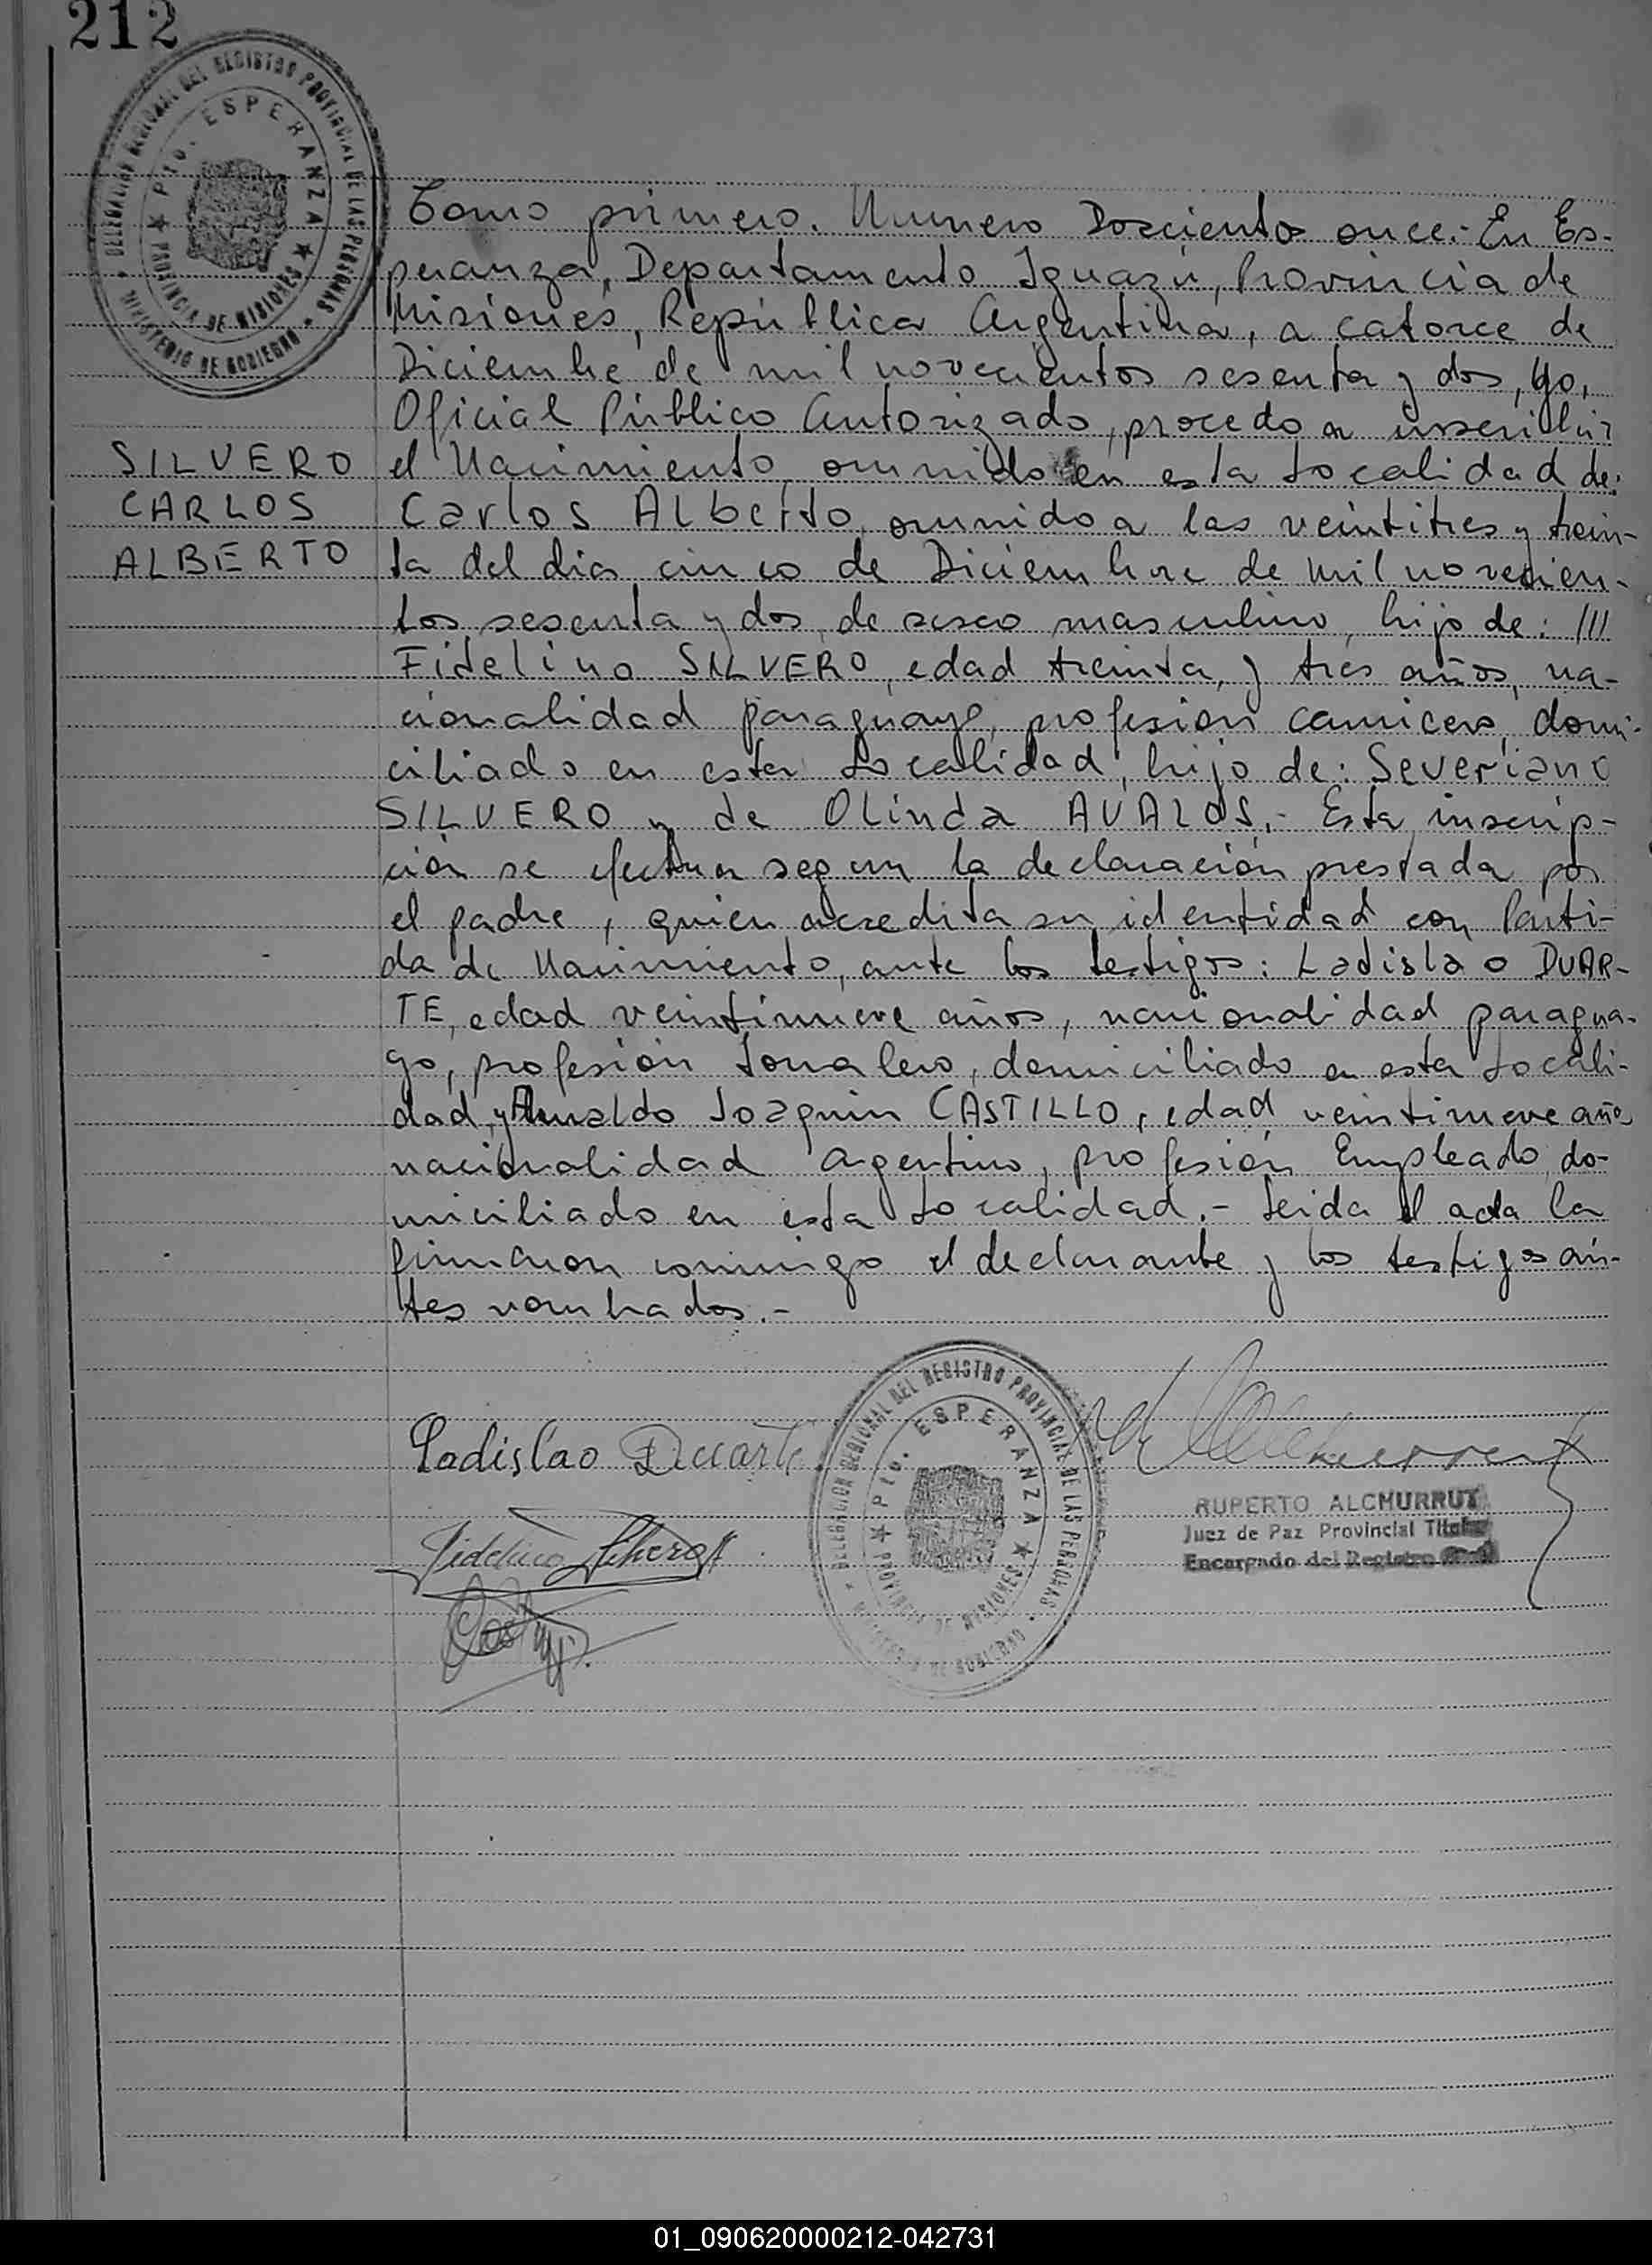 212
DELEGACION REGIONAL DEL REGISTRO PROVINCIAL DE LAS PERSONAS
★ Pto. ESPERANZA ★
PROVINCIA DE MISIONES
MINISTERIO DE GOBIERNO
SILVERO
CARLOS
ALBERTO
Tomo primero. Numero Doscientos once.- En Es-
peranza, Departamento Iguazú, Provincia de
Misiones, República Argentina, a catorce de
Diciembre de mil novecientos sesenta y dos, yo,
Oficial Público Autorizado, procedo a inscribir
el Nacimiento ocurrido en esta Localidad de:
Carlos Alberto, ocurrido a las veintitres y trein-
ta del dia cinco de Diciembre de mil novecien-
tos sesenta y dos, de sexo masculino, hijo de: ///
Fidelino SILVERO, edad treinta, y tres años, na-
cionalidad paraguayo, profesion carnicero, domi-
ciliado en esta Localidad, hijo de: Severiano
SILVERO y de Olinda AVALOS.- Esta inscrip-
ción se efectua segun la declaración prestada por
el padre, quien acredita su identidad con Parti-
da de Nacimiento, ante los testigos: Ladislao DUAR-
TE, edad veintinueve años, nacionalidad paragua-
yo, profesión Jornalero, domiciliado en esta Locali-
dad, y Arnaldo Joaquin CASTILLO, edad veintinueve años
nacionalidad argentino, profesión Empleado, do-
miciliado en esta Localidad.- Leida el acta la
firmaron conmigo el declarante y los testigos an-
tes nombrados.-
Ladislao Duarte
Fidelino Silvero
DELEGACION REGIONAL DEL REGISTRO PROVINCIAL DE LAS PERSONAS
★ Pto. ESPERANZA ★
PROVINCIA DE MISIONES
MINISTERIO DE GOBIERNO
RUPERTO ALCHURRUT
Juez de Paz Provincial Titular
Encargado del Registro
01_090620000212-042731